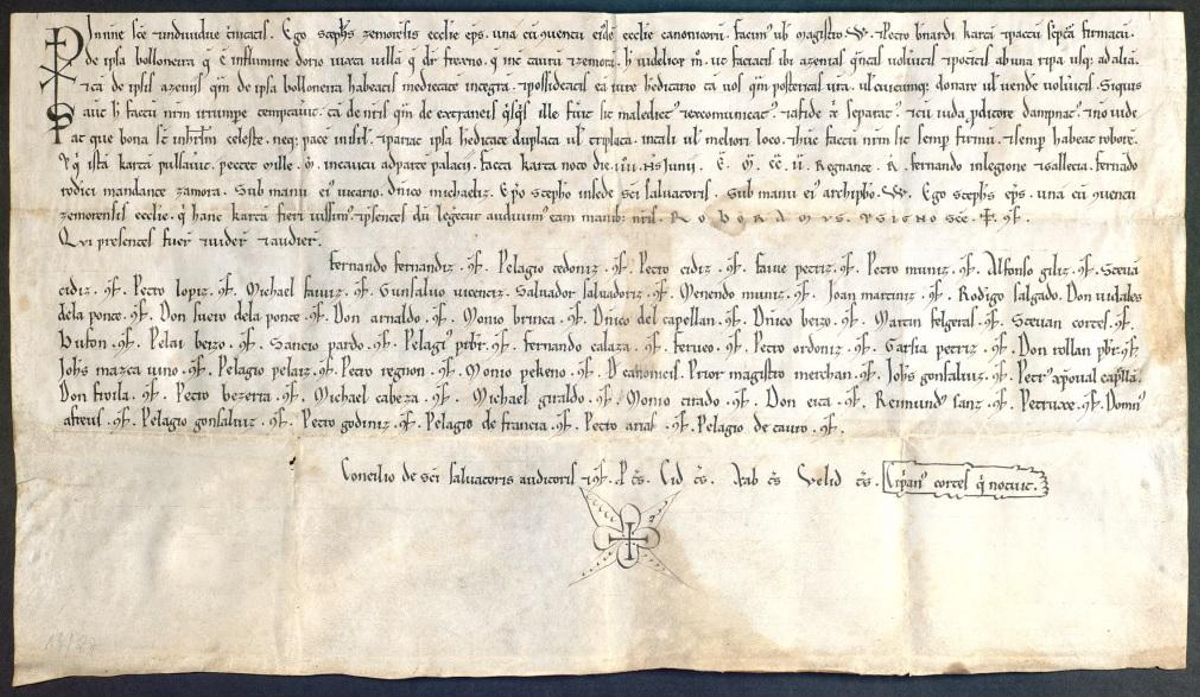 In nne sce & individue trinitatis. Ego Stephs zemorensis ecclie eps. una cu guentu eide ecclie canonicoru. facim vob magistro .W. & Petro bnardi karta & pactu & sepea firmacu.
de ipsa bolloneira q e in flumine dorio iuxta villa q dr frexno. q int cauru & zemora. h videlicet m. ut faciatis ibi azenias qntas volueitis & poteitis ab una ripa usq; ad alia.
& ca de ipsis azeniis qm de ipsa bolloneira habeatis medietate integra. & possideatis ea iure hereditario ta vos qm posteritas vra. ul cuicumq; donare ul vende volueitis. Siquis
aut h factu nrm irrumpe temptauit. ta de nris qm de extraneis qslqs ille fuit sit maledict & excomunicat. & a fide xpi separat. & cu iuda pditore dampnat. & no vide
at que bona st in ihrlm celeste. neq; pace in isrl. & pariat ipsa hedicate duplata ul triplata. in tali ul meliori loco. & hoc factu nrm sit semp firmu. & semp habeat robore.
& q ista karta pulsauit. pectet mille m. in cautu ad parte palacii. Facta karta noto die .iiii. Ns Junii. E. M. CC. ii. Regnante. R. fernando in legione & Gallecia. fernado
rodici mandante zamora. Sub manu ei vicario. Dnico michaeliz. Epo Stepho in sede sci saluatoris. Sub manu ei archipbo. W. Ego Stephs eps. una cu guentu
zemorensis ecclie. q hanc karta fieri iussim & presentes du legeret audiuim eam manib; nris. ROBORAMUS. & SIGNO sce. &. gf.
Qui presentes fuer & vider & audier.
fernando fernandiz . gf. Pelagio tedoniz . gf. Petro cidiz . gf. faiue petriz . gf. Petro muniz . gf. Alfonso giliz . gf. Steua
cidiz . gf. Petro lopiz . gf. Michael faiuiz . gf. Gunsaluo vicentiz. Saluador saluadoriz . gf. Menendo muniz . gf. Joan martiniz . gf. Rodigo salgado. Don vidales
dela ponte . gf. Don suero dela ponte . gf. Don arnaldo . gf. Monio brinca . gf. Dnico del capellan . gf. Dnico beizo . gf. Martin felgeras . gf. Steuan cortes . gf.
Hufon . gf. Pelai beizo . gf. Sancio pardo . gf. Pelagi prbr . gf. fernando calaza . gf. ferueo . gf. Petro ordoniz . gf. Garsia petriz . gf. Don rollan pbr . gf.
Johs mazca uino . gf. Pelagio pelaiz . gf. Petro regnon . gf. Monio pekeno . gf. D canonicis. Prior magistro merchan . gf. Johs gonsaluiz . gf. Petr xpoual capella.
Don froila . gf. Petro bezerra . gf. Michael cabeza . gf. Michael giraldo . gf. Monio cirado . gf. Don eita . gf. Reimund sanz . gf. Petruxe . gf. Domn
afreul . gf. Pelagio gonsaluiz . gf. Petro godiniz . gf. Pelagio de francia . gf. Petro arias . gf. Pelagio de cauro . gf.
Concilio de sci saluatoris auditoris & gf. P ts. Cid ts. Xab ts Velid ts. Ciprian cortes q notuit.